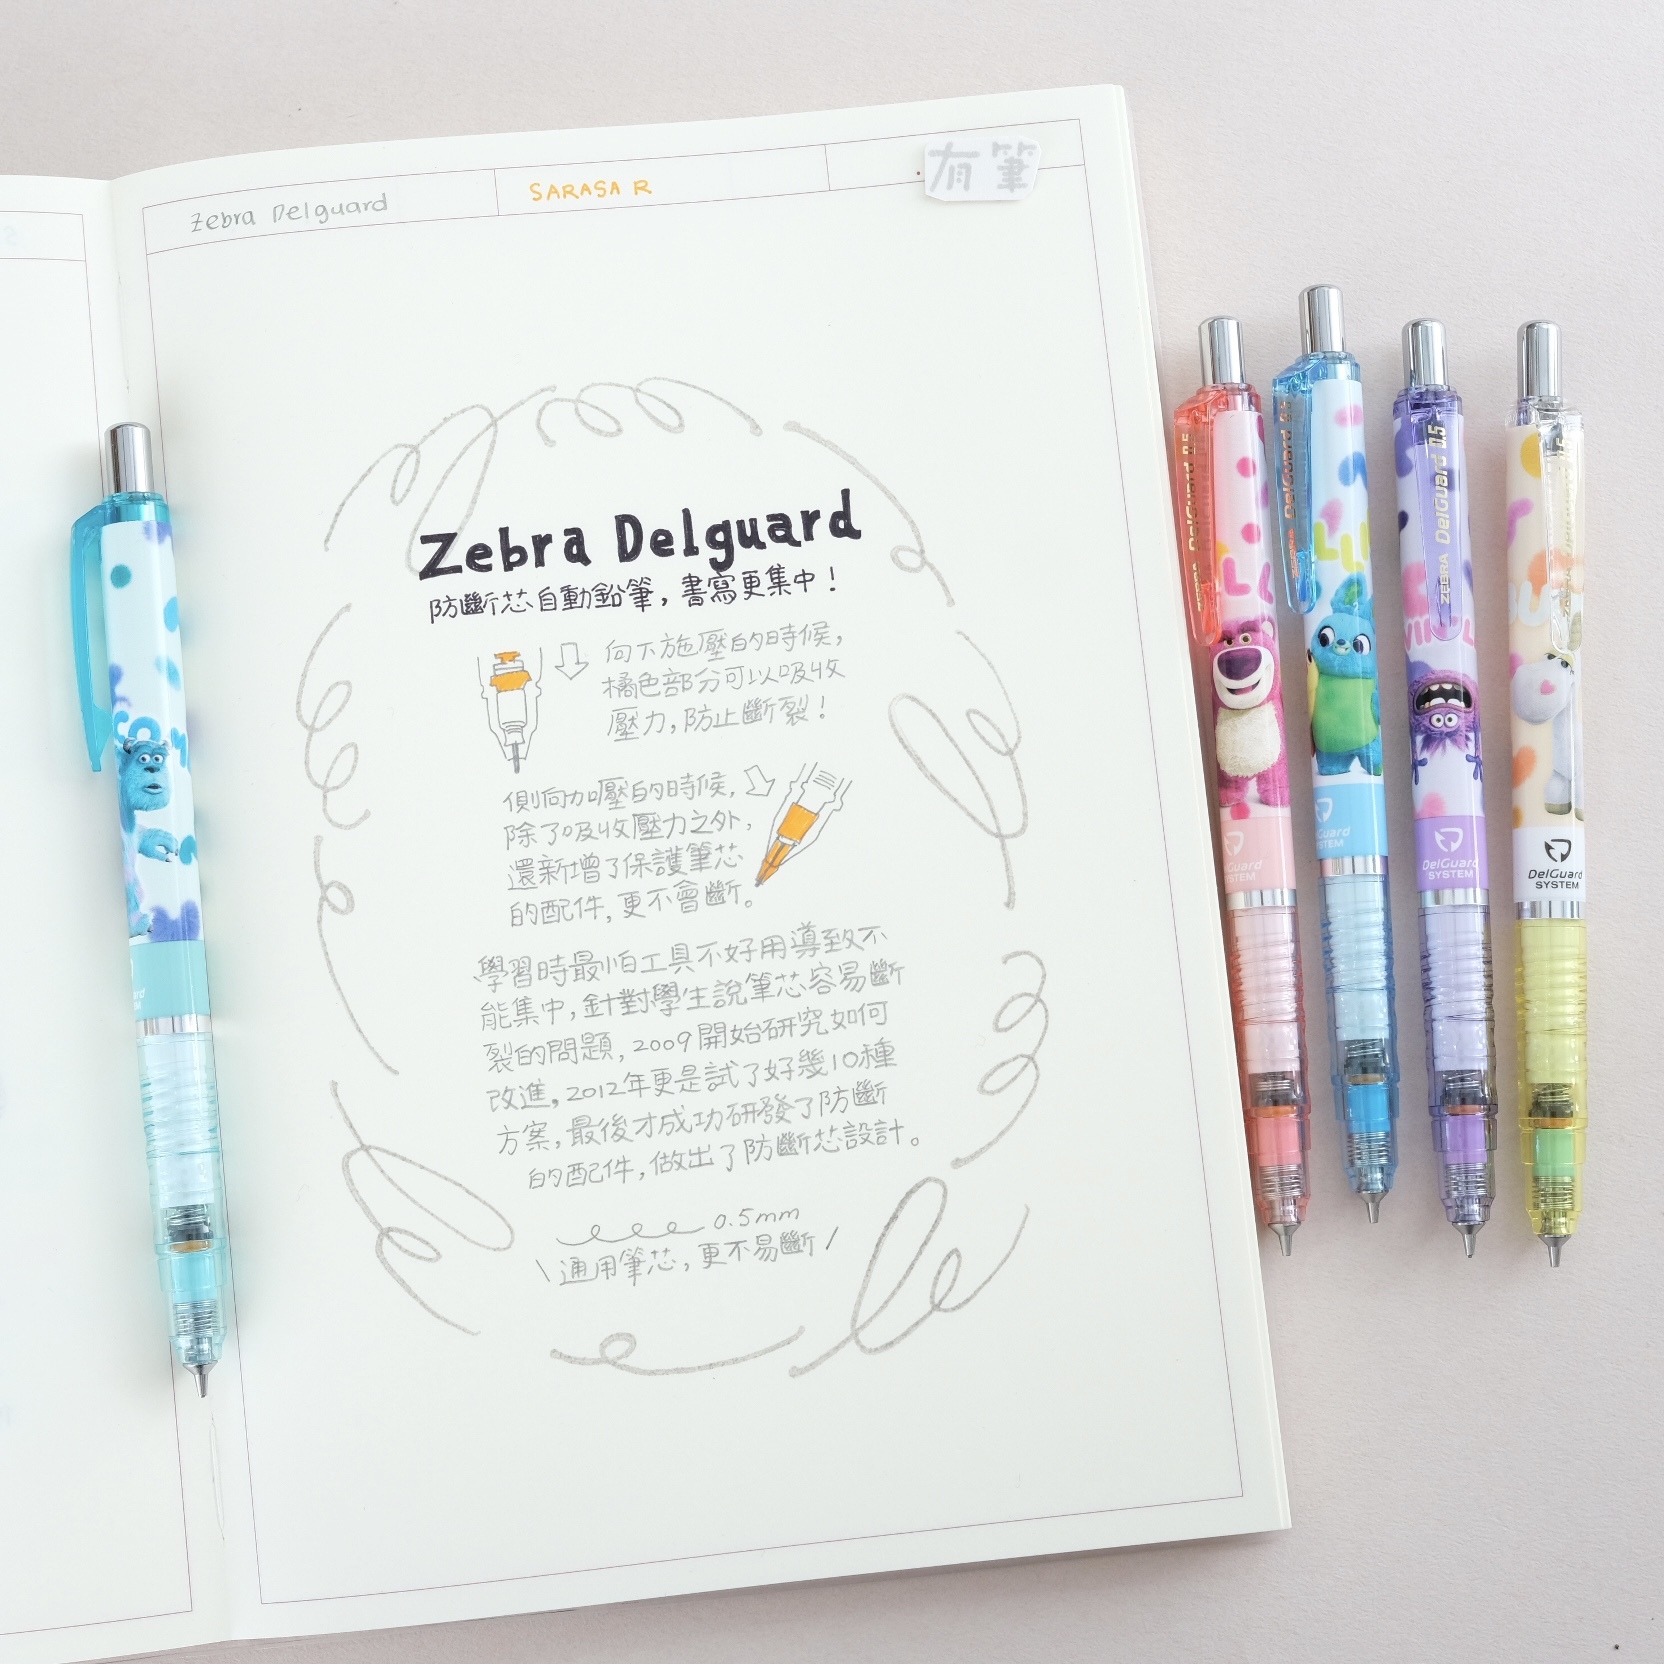 Zebra Delguard
SARASA R
有筆
Zebra Delguard
防斷芯自動鉛筆，書寫更集中！
向下施壓的時候，
橘色部分可以吸收
壓力，防止斷裂！
側向加壓的時候，
除了吸收壓力之外，
還新增了保護筆芯
的配件，更不會斷。
學習時最怕工具不好用導致不
能集中，針對學生說筆芯容易斷
裂的問題，2009開始研究如何
改進，2012年更是試了好幾10種
方案，最後才成功研發了防斷
的配件，做出了防斷芯設計。
0.5mm
\ 通用筆芯，更不易斷 /
ZEBRA DelGuard 0.5
ZEBRA DelGuard 0.5
ZEBRA DelGuard 0.5
DelGuard
SYSTEM
DelGuard
SYSTEM